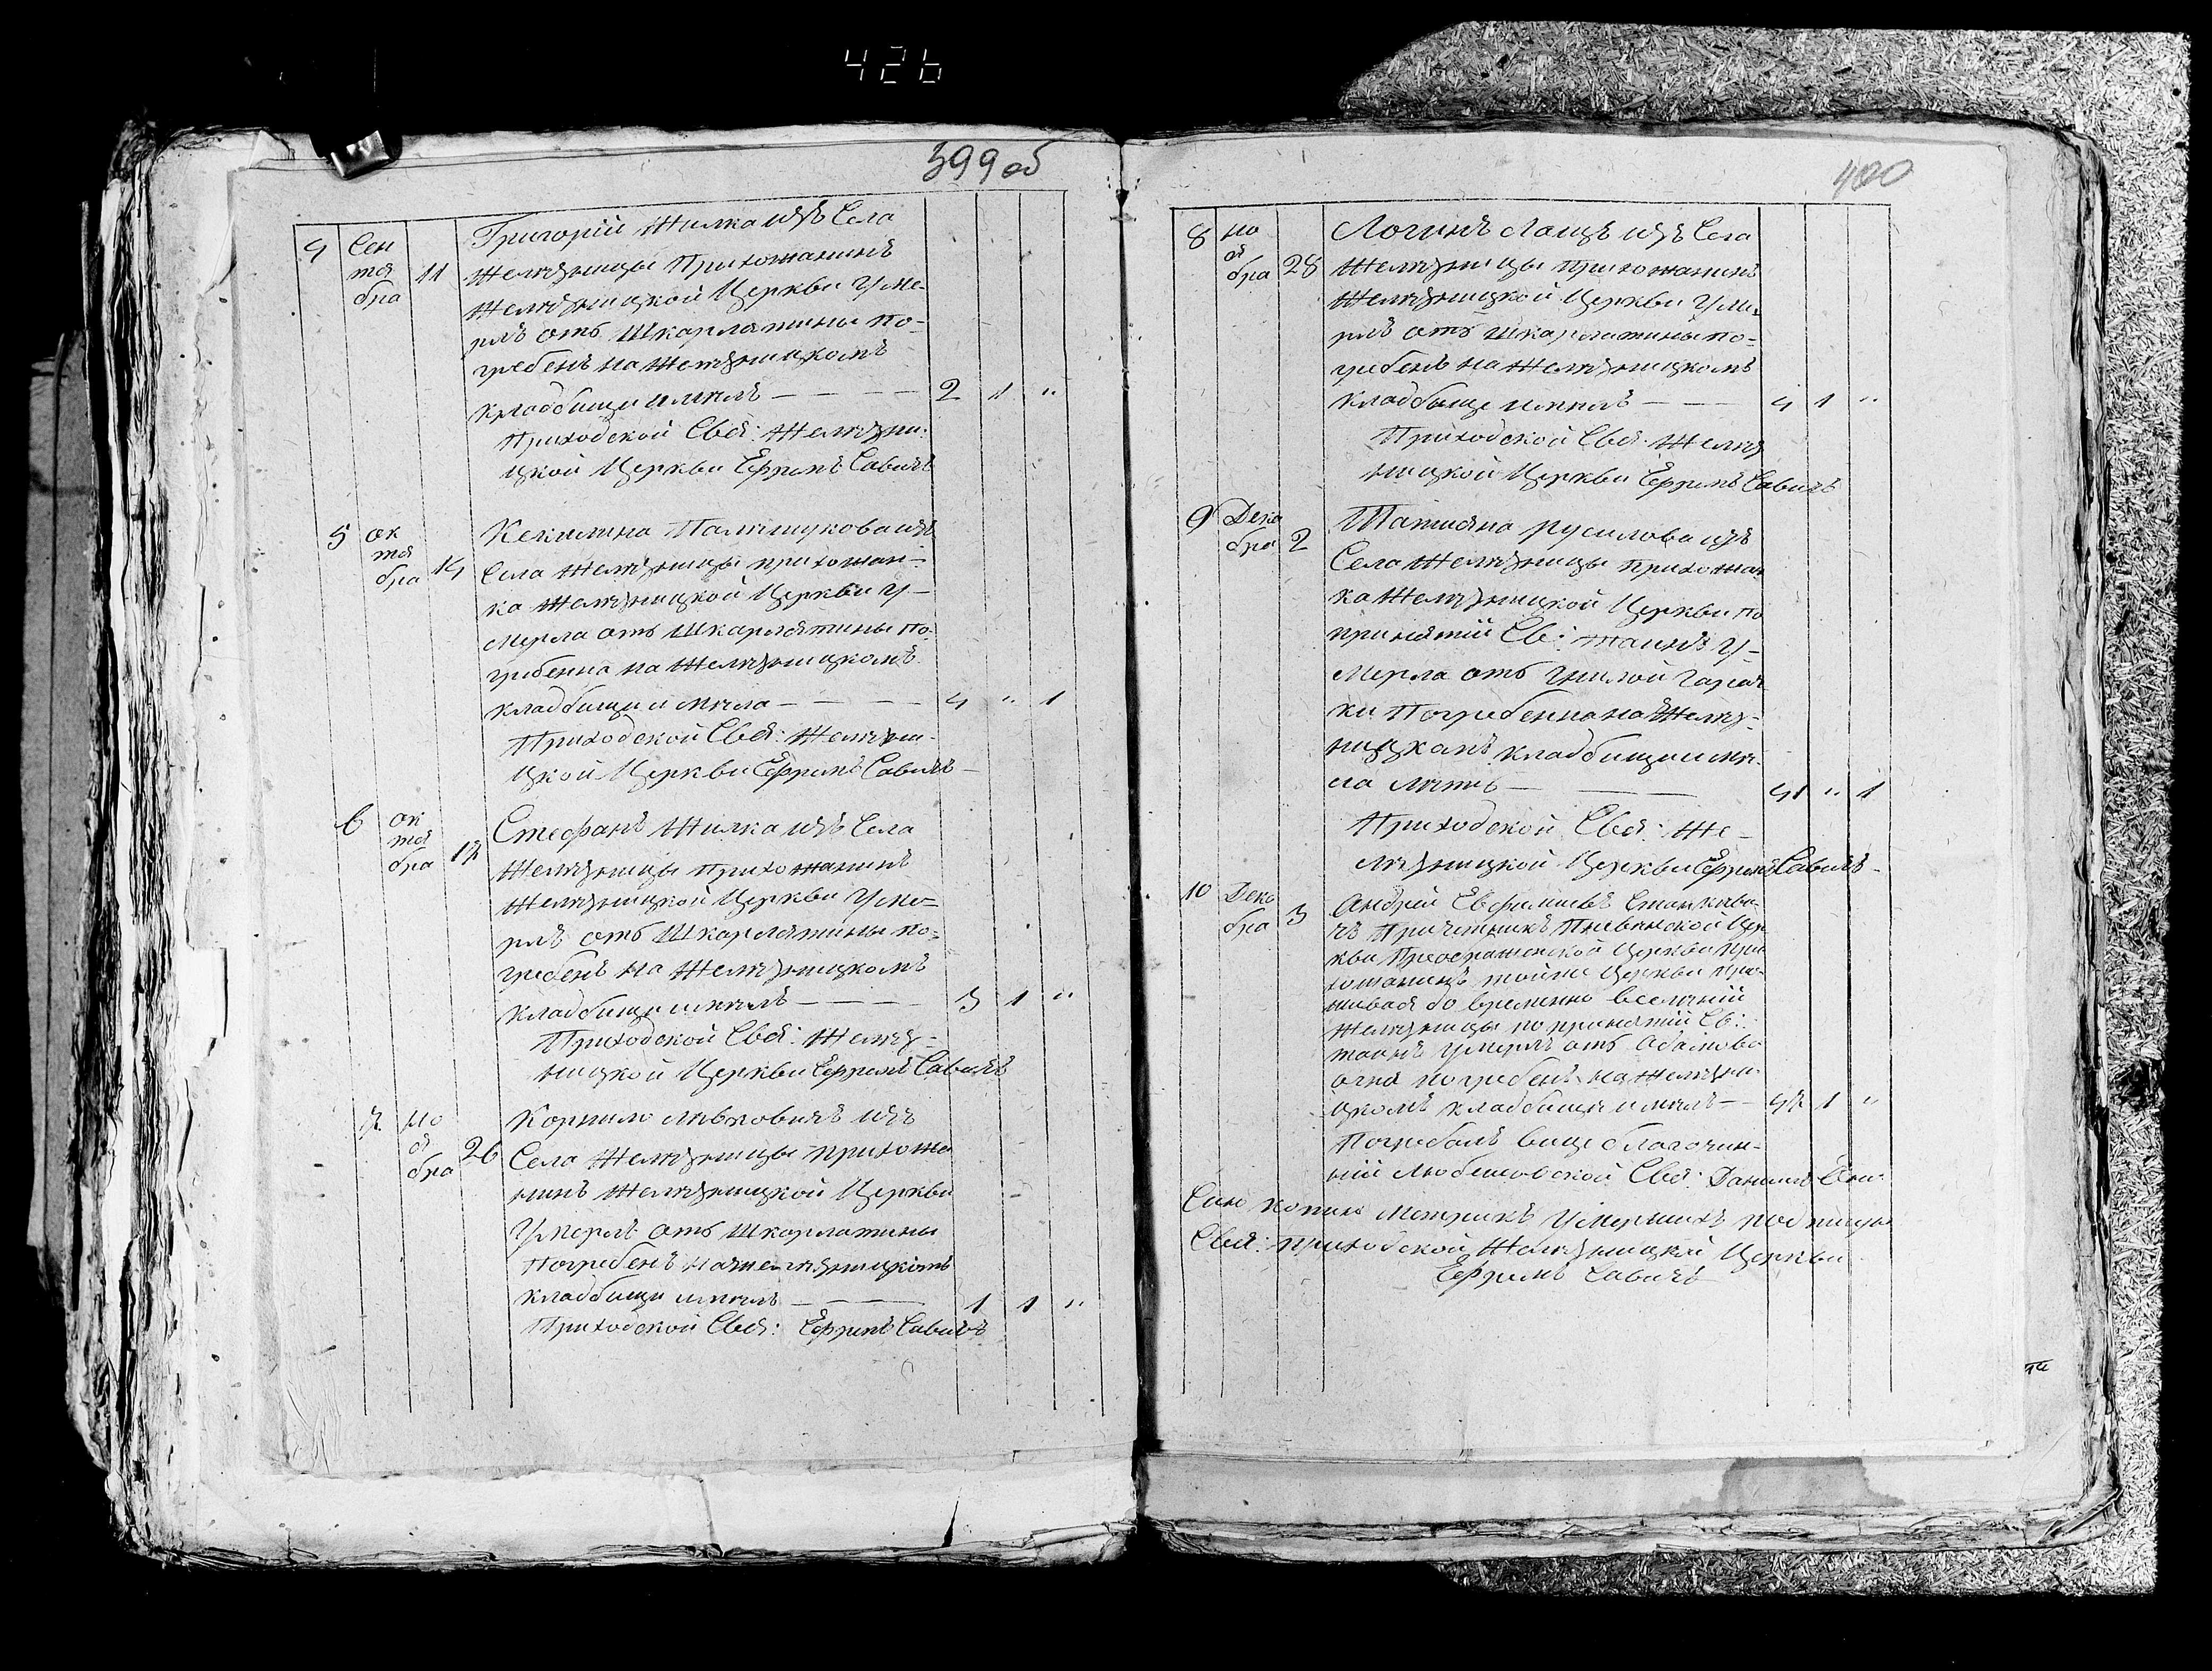 426
399 об
4 Сен
тя
бра 11 Григорій Жилка изъ Села
Желѣзницы Прихожанинъ
Желѣзницкой Церкви Уме-
рлъ отъ Шкарлятины по-
гребенъ на Желѣзницкомъ
кладбищи имѣлъ — 2 1 "
Приходской Свя: Желѣзни-
цкой Церкви Ефремъ Савичъ
5 ок
тя
бра 14 Кекилина Палашукова изъ
Села Желѣзницы прихожан-
ка Желѣзницкой Церкви У-
мерла отъ Шкарлятины по-
гребенна на Желѣзницкомъ
кладбищи имѣла — 4 " 1
Приходской Свя: Желѣзни-
цкой Церкви Ефремъ Савичъ
6 ок
тя
бра 17 Стефанъ Жилка изъ Села
Желѣзницы прихожанинъ
Желѣзницкой Церкви Уме-
рлъ отъ Шкарлятины по-
гребенъ на Желѣзницкомъ
кладбищи имѣлъ — 3 1 "
Приходской Свя: Желѣз-
ницкой Церкви Ефремъ Савичъ
7 но
я
бра 26 Корнило изъ
Села Желѣзницы прихожа
нинъ Желѣзницкой Церкви
Умерлъ отъ Шкарлатины
Погребенъ на Желѣзницкомъ
кладбищи имѣлъ — 1 1 "
Приходской Свя: Ефремъ Савичъ
400
8 но
я
бра 28 Логинъ Лащъ изъ Села
Желѣзницы прихожанинъ
Желѣзницкой Церкви Уме-
рлъ отъ Шкарлатины по-
гребенъ на Желѣзницкомъ
кладбище имѣлъ — 4 1 "
Приходской Свя: Желѣз
ницкой Церкви Ефремъ Савичъ
9 Дека
бра 2 Татиана Русилова изъ
Села Желѣзницы прихожан
ка Желѣзницкой Церкви по
принятіи Св: таинъ У-
мерла отъ Гнилой Горяч
ки Погребенна на Желѣз-
ницкомъ кладбищи имѣ-
ла лѣтъ — 41 " 1
Приходской Свя: Же-
лѣзницкой Церкви Ефремъ Савичъ
10 Дека
бра 3 Андрій Евфиміевъ
чъ Причетникъ Пневнской Цер
кви Преображенской Церкви при
хожанинъ тойже Церкви про-
живая до временно вселеній
Желѣзницы по принятіи Св:
таинъ умерлъ отъ Адамова
огня погребенъ на Желѣзни-
цкомъ кладбищи имѣлъ — 47 1 "
Погребалъ вице благочин-
ній Любешовской Свя: Данилъ
Сию копию метрикъ Умершихъ подписую
Свя: приходской Желѣзницкой Церкви
Ефремъ Савичъ